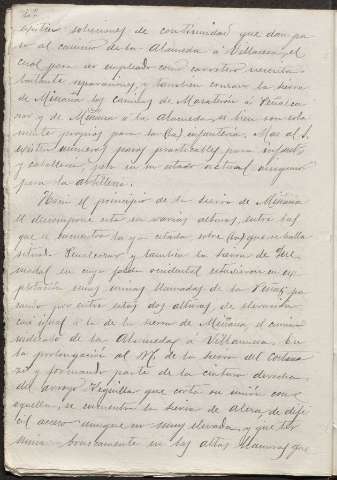 existen soluciones de continuidad que dan pa-
so al camino de la Alameda á Villaseca, el
cual para ser empleado como carretera necesita
bastante reparacion, y tambien cruzan la sierra
de Miñana los caminos de Mazaterón á Peñalca-
zar y de Miñana á la Alameda, si bien son sola-
mente propios para la (la) infanteria. Mas al S.
existen numerosos pasos practicables para infanta
y caballeria, pero en su estado actual ninguno
para la artilleria.
Hacia el principio de la sierra de Miñana
se descompone esta en varias alturas, entre las
que se encuentra la ya citada sobre (la) que se halla
situado Peñalcazar y tambien la sierra de
en cuya falda occidental estuvieron en es-
plotación unas minas llamadas de la Peña;
por entre estas dos alturas, de elevacion
casi igual á la de la sierra de Miñana, el camino
de la Alameda á Villanueva. En
la prolongación al N. de la sierra del Costana-
zo y formando parte de la cintura derecha
del arroyo Reguillar que corta su union con
aquella, se encuentra la sierra de de difi-
cil acceso aunque no muy elevada, y que ter-
mina bruscamente en las altas llanuras que